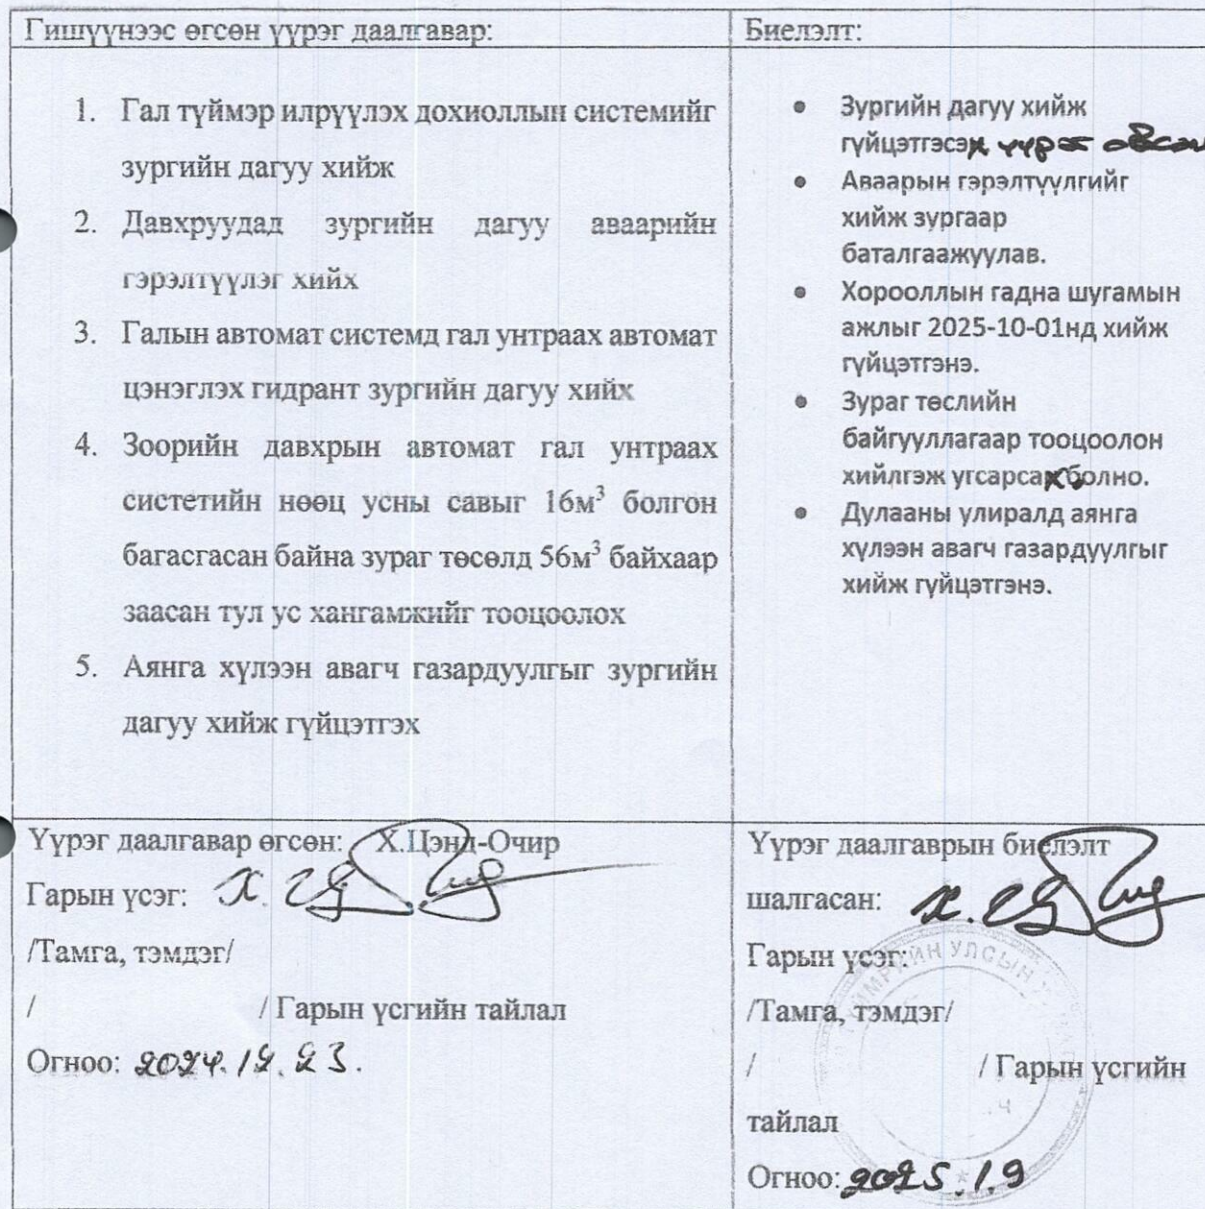 Гишүүнээс өгсөн үүрэг даалгавар:
1. Гал түймэр илрүүлэх дохиоллын системийг
зургийн дагуу хийж
2. Давхруудад зургийн дагуу аваарийн
гэрэлтүүлэг хийх
3. Галын автомат системд гал унтраах автомат
цэнэглэх гидрант зургийн дагуу хийх
4. Зоорийн давхрын автомат гал унтраах
систетийн нөөц усны савыг 16м³ болгон
багасгасан байна зураг төсөлд 56м³ байхаар
заасан тул ус хангамжийг тооцоолох
5. Аянга хүлээн авагч газардуулгыг зургийн
дагуу хийж гүйцэтгэх
Биелэлт:
• Зургийн дагуу хийж
гүйцэтгэсэн үүрэг авсан
• Аваарын гэрэлтүүлгийг
хийж зургаар
баталгаажуулав.
• Хорооллын гадна шугамын
ажлыг 2025-10-01нд хийж
гүйцэтгэнэ.
• Зураг төслийн
байгууллагаар тооцоолон
хийлгэж угсарсах болно.
• Дулааны улиралд аянга
хүлээн авагч газардуулгыг
хийж гүйцэтгэнэ.
Үүрэг даалгавар өгсөн: Х.Цэнд-Очир
Гарын үсэг:
/Тамга, тэмдэг/
/ / Гарын үсгийн тайлал
Огноо: 2024.12.23.
Үүрэг даалгаврын биелэлт
шалгасан:
Гарын үсэг:
/Тамга, тэмдэг/
/ / Гарын үсгийн
тайлал
Огноо: 2025.1.9